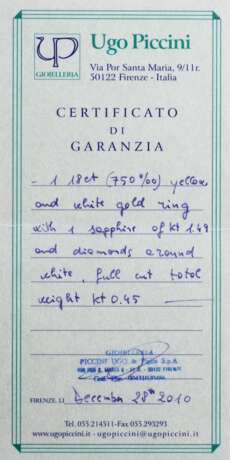 UP
GIOIELLERIA
Ugo Piccini
Via Por Santa Maria, 9/11r.
50122 Firenze - Italia
CERTIFICATO
DI
GARANZIA
- 1 18ct (750‰) yellow
and white gold ring
with 1 sapphire of kt 1.49
and diamonds around
white, full cut total
weight kt 0.45
GIOIELLERIA
PICCINI UGO & Figlio S.p.A.
FIRENZE, LI December 28th 2010
Tel. 055 214511-Fax 055 293293
www.ugopiccini.it - ugopiccini@ugopiccini.it